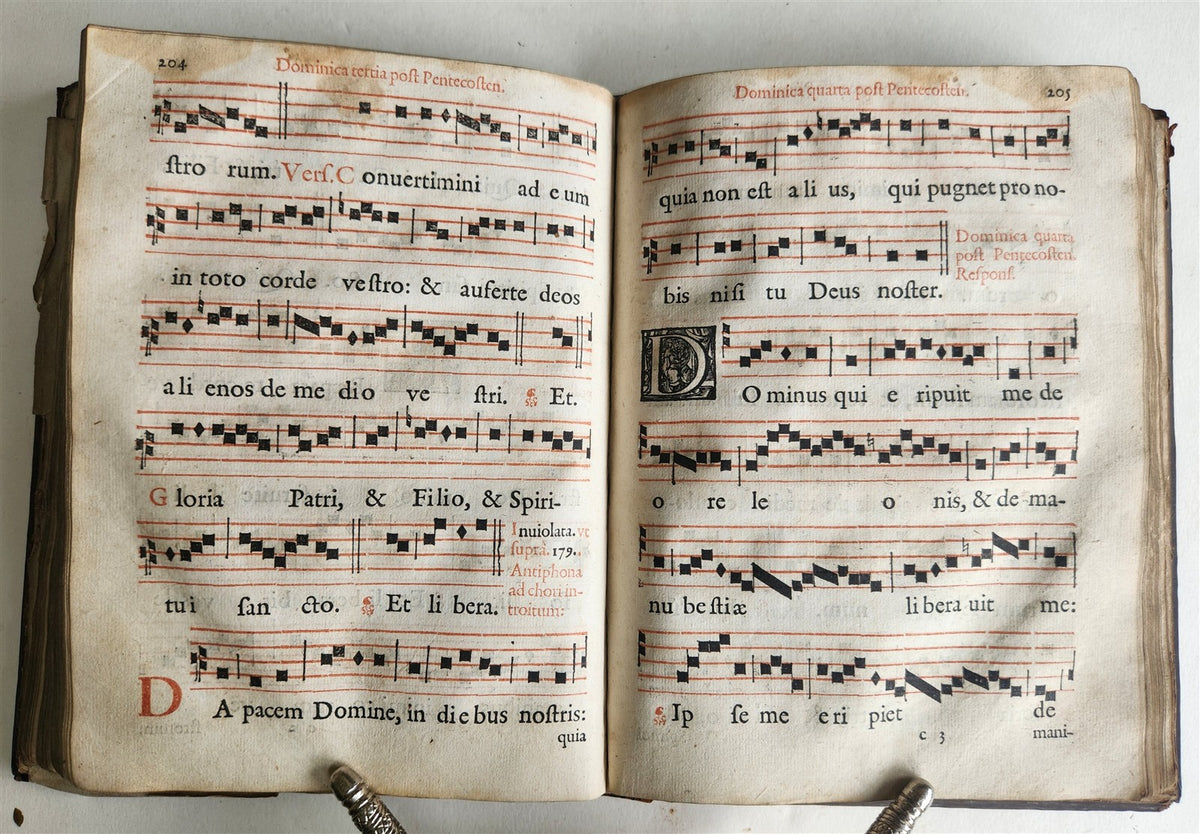 204
Dominica tertia post Pentecosten.
ſtro rum. Verſ. C onuertimini ad e um
in toto corde veſtro: & auferte deos
ali enos de me dio ve ſtri. Et.
G loria Patri, & Filio, & Spiri-
tui ſan cto. Et li bera.
Inuiolata. vt
ſupra. 179.
Antiphona
ad chori in-
troitum:
D A pacem Domine, in diebus noſtris:
quia
Dominica quarta poſt Pentecoſten.
205
quia non eſt a li us, qui pugnet pro no-
bis niſi tu Deus noſter.
Dominica quarta
poſt Pentecoſten.
Reſponſ.
D O minus qui e ripuit me de
o re le o nis, & de ma-
nu be ſtiæ li bera uit me:
Ip ſe me e ri piet de
c 3
mani-